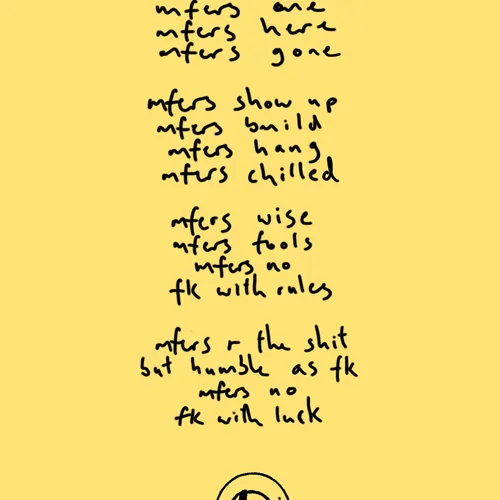 mfers one
mfers here
mfers gone
mfers show up
mfers build
mfers hang
mfers chilled
mfers wise
mfers fools
mfers no
fk with rules
mfers r the shit
but humble as fk
mfers no
fk with luck